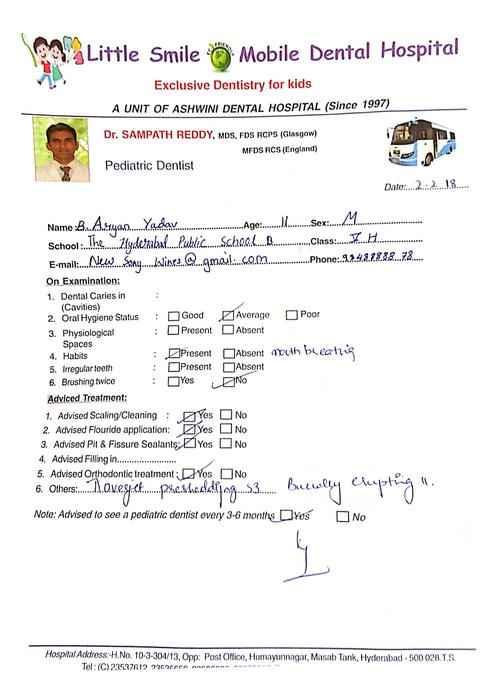 Little Smile Mobile Dental Hospital
ECO FRIENDLY
Exclusive Dentistry for kids
A UNIT OF ASHWINI DENTAL HOSPITAL (Since 1997)
Dr. SAMPATH REDDY, MDS, FDS RCPS (Glasgow)
MFDS RCS (England)
Pediatric Dentist
Date: 2-2 18
Name B. Aryan Yadav Age: 11 Sex: M
School: The Hyderabad Public School B Class: V H
E-mail: New Sony Wines@gmail.com Phone:
On Examination:
1. Dental Caries in (Cavities) :
2. Oral Hygiene Status : Good Average Poor
3. Physiological Spaces : Present Absent
4. Habits : Present Absent mouth breating
5. Irregular teeth : Present Absent
6. Brushing twice : Yes No
Adviced Treatment:
1. Advised Scaling/Cleaning : Yes No
2. Advised Flouride application: Yes No
3. Advised Pit & Fissure Sealants: Yes No
4. Advised Filling in
5. Advised Orthodontic treatment : Yes No
6. Others: preshedding 53 erupting 11.
Note: Advised to see a pediatric dentist every 3-6 months Yes No
Hospital Address:-H.No. 10-3-304/13, Opp: Post Office, Humayunnagar, Masab Tank, Hyderabad - 500 028.T.S.
Tel: (C) 23537612